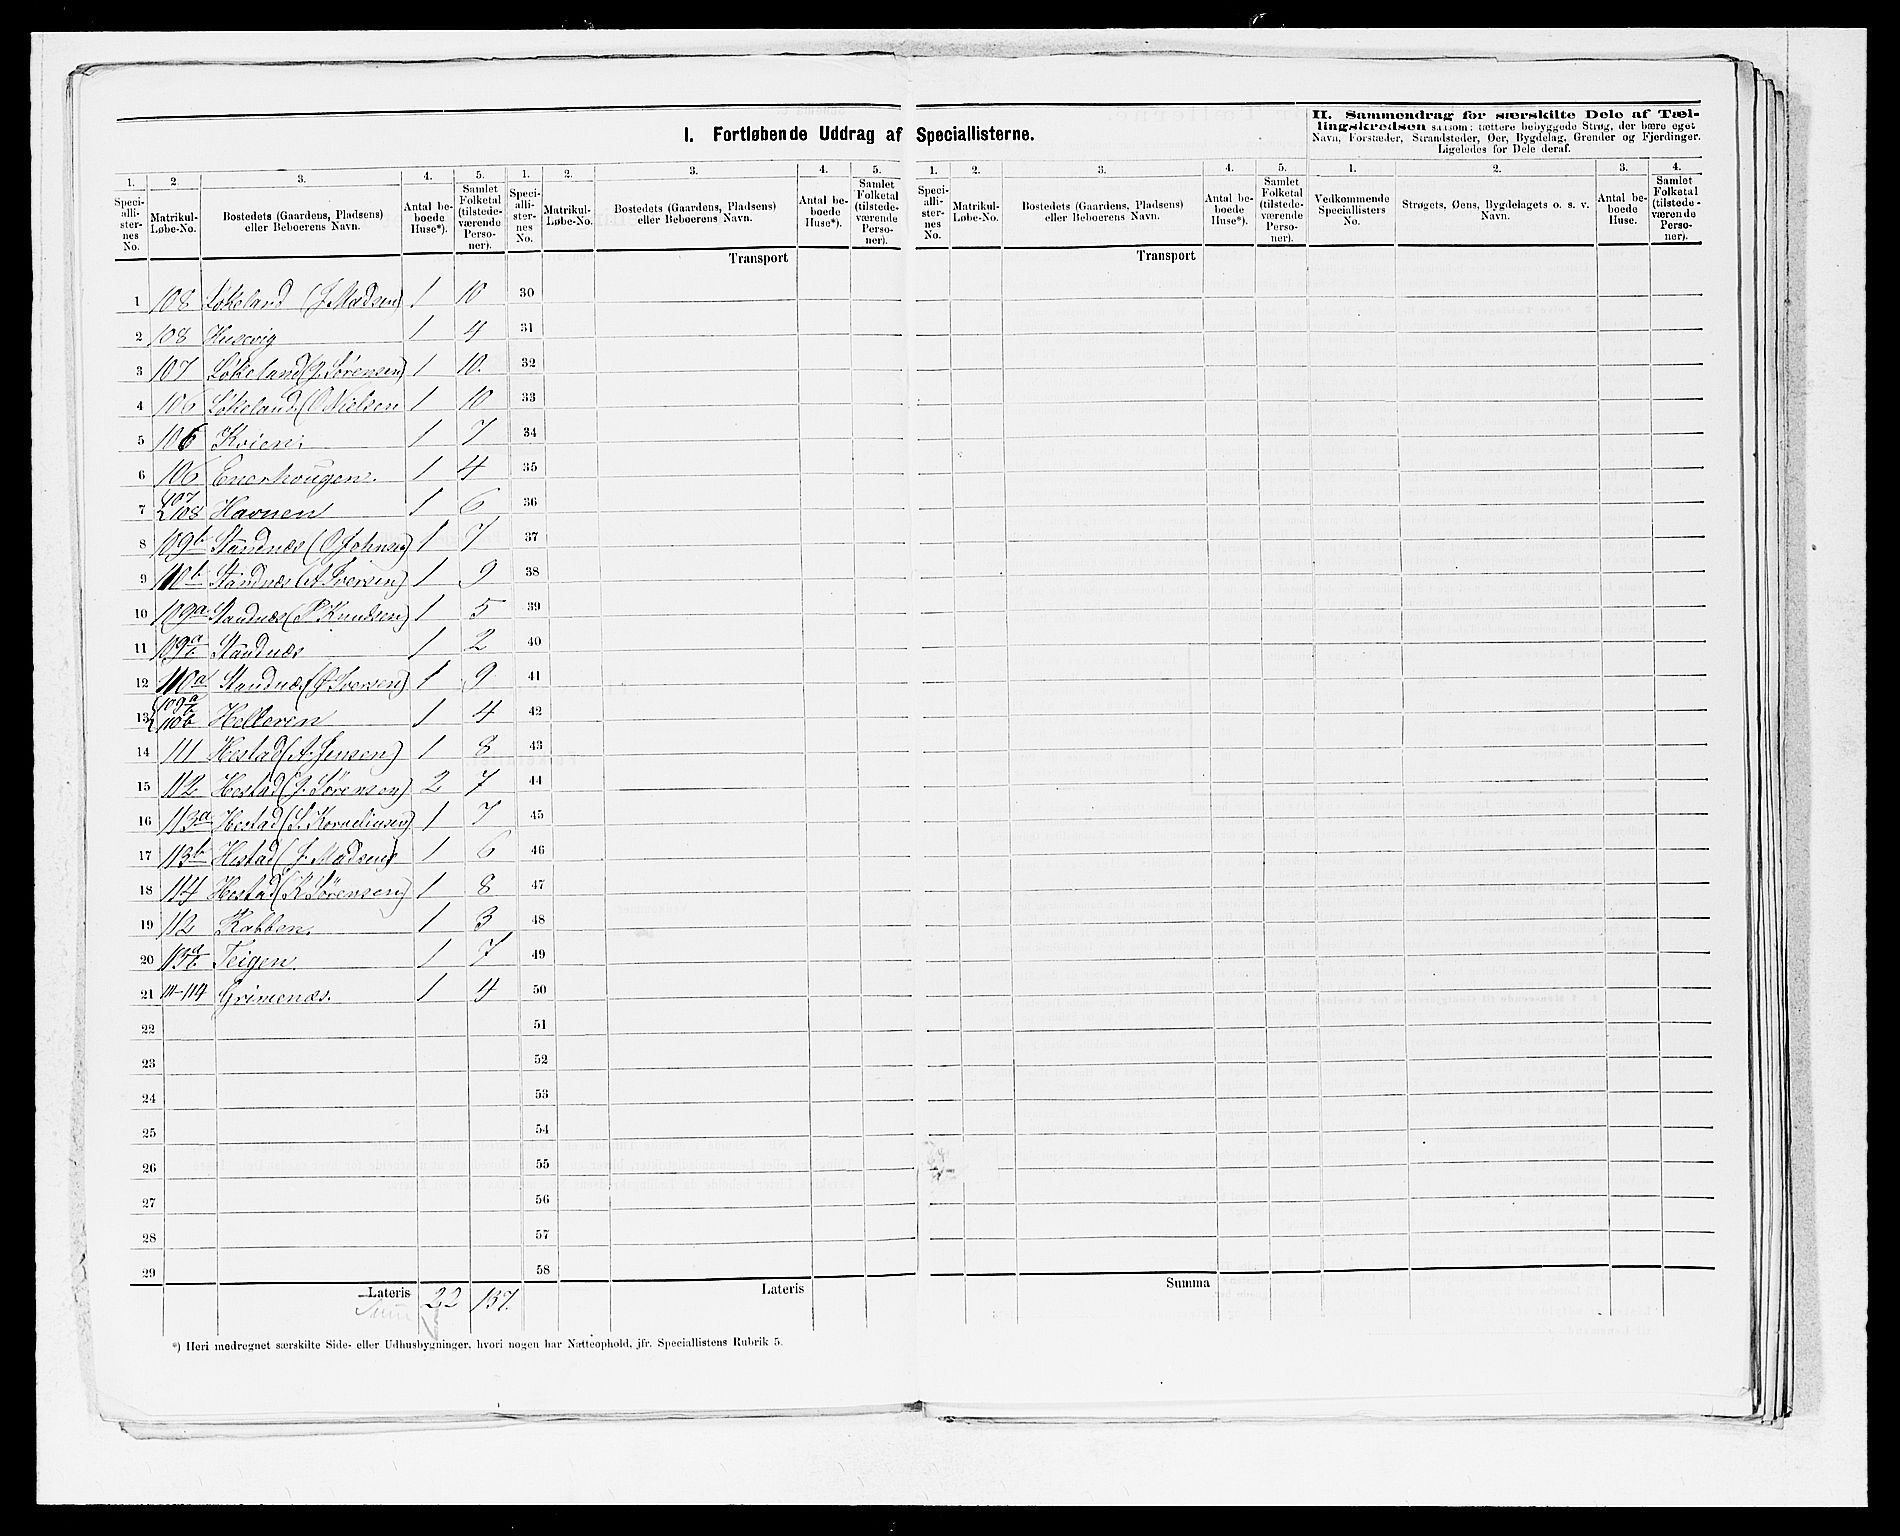 I. Fortløbende Uddrag af Speciallisterne.
II. Sammendrag for særskilte Dele af Tæl-
lingskredsen saasom: tættere bebyggede Strøg, der bære eget
Navn, Forstæder, Strandsteder, Øer, Bygdelag, Grender og Fjerdinger.
Ligeledes for Dele deraf.
1. 2. 3. 4. 5. 1. 2. 3. 4. 5. 1. 2. 3. 4. 5. 1. 2. 3. 4.
Speci-alli-ster-nes No. Matrikul-Løbe-No. Bostedets (Gaardens, Pladsens) eller Beboerens Navn. Antal be-boede Huse*). Samlet Folketal (tilstede-værende Perso-ner).
Speci-alli-ster-nes No. Matrikul-Løbe-No. Bostedets (Gaardens, Pladsens) eller Beboerens Navn. Antal be-boede Huse*). Samlet Folketal (tilstede-værende Perso-ner).
Speci-alli-ster-nes No. Matrikul-Løbe-No. Bostedets (Gaardens, Pladsens) eller Beboerens Navn. Antal be-boede Huse*). Samlet Folketal (tilstede-værende Perso-ner).
Vedkommende Speciallisters No. Strøgets, Øens, Bygdelagets o. s. v. Navn. Antal be-boede Huse. Samlet Folketal (tilstede-værende Perso-ner).
Transport Transport
1 108 Løkeland (J Madsen) 1 10 30
2 108 Husevig 1 4 31
3 107 Løkeland (J. Sørensen) 1 10. 32
4 106 Løkeland (O Nielsen 1 10 33
5 106 Kvien. 1 7 34
6 106 Enerhougen. 1 4 35
7 107 108 Havnen 1 6 36
8 109b Standnæs (O Johnsen) 1 7 37
9 110b Standnæs (A Iversen) 1 9 38
10 109a Standnæs (P Knudsen) 1 5 39
11 109a b Standnæs 1 2 40
12 110a Standnæs (Ø Iversen) 1 9. 41
13 109a b 110b Helleren 1 4 42
14 111 Hestad (A. Jensen) 1 8 43
15 112 Hestad (J. Sørensen) 2 7 44
16 113a Hestad (S. Korneliusen) 1 7 45
17 113b Hestad (J. Madsen) 1 6 46
18 114 Hestad (K Sørensen) 1 8 47
19 112 Kabben. 1 3 48
20 113a b Teigen. 1 7 49
21 111-114 Grimenæs. 1 4 50
22 51
23 52
24 53
25 54
26 55
27 56
28 57
29 58
Lateris 22 137. Lateris Summa
*) Heri medregnet særskilte Side- eller Udhusbygninger, hvori nogen har Natteophold, jfr. Speciallistens Rubrik 5.